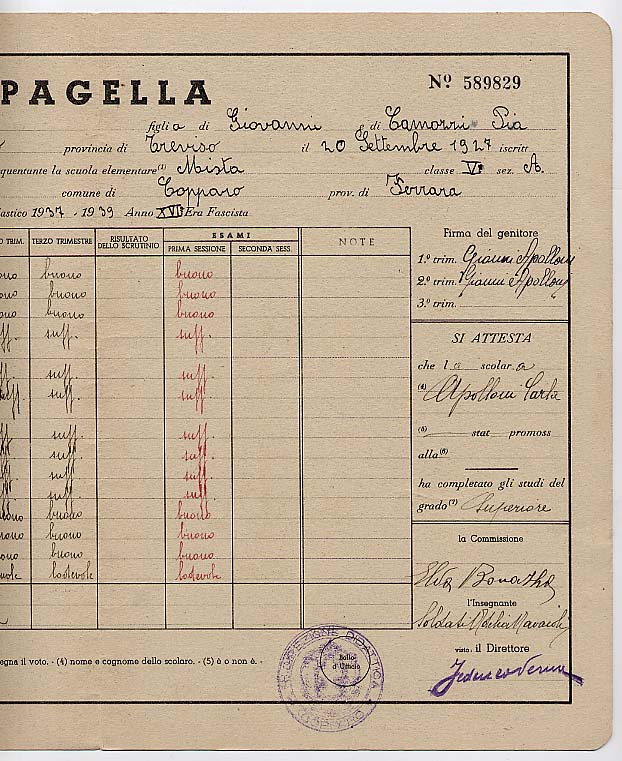 PAGELLA
Nº 589829
figlia di Giovanni e di Camozzi Pia
provincia di Treviso il 20 Settembre 1927 iscritt
quentante la scuola elementare(1) Mista classe Vª sez. A.
comune di Copparo prov. di Ferrara
lastico 1937 - 1939 Anno XVII Era Fascista
O TRIM. TERZO TRIMESTRE RISULTATO DELLO SCRUTINIO ESAMI NOTE
PRIMA SESSIONE SECONDA SESS.
ono buono buono
ono buono buono
ono buono buono
ff. suff. suff.
ff. suff. suff.
uff. suff. suff.
ff suff. suff.
ff suff. suff.
ff suff. suff.
ff suff. suff.
uono buono buono
ono buono buono
ono buono buono
vole lodevole lodevole
Firma del genitore
1.º trim. Gianni Apolloni
2.º trim. Gianni Apolloni
3.º trim.
SI ATTESTA
che l a scolar a
(4) Apolloni Carla
(5) stat promoss
alla(6)
ha completato gli studi del
grado(7) Superiore
la Commissione
Elda
l'Insegnante
Soldati
visto: il Direttore
egna il voto. - (4) nome e cognome dello scolaro. - (5) è o non è. -
Bollo d'Ufficio
DIDATTICA